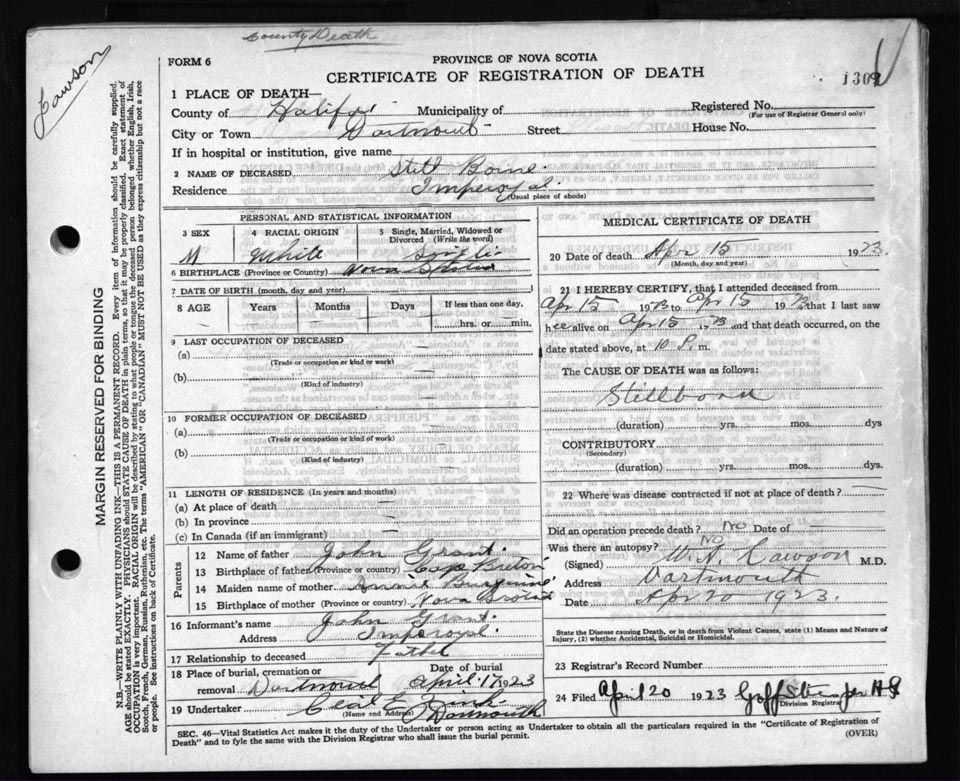 County Death
Lawson
FORM 6
PROVINCE OF NOVA SCOTIA
CERTIFICATE OF REGISTRATION OF DEATH
1 PLACE OF DEATH—
County of Halifax Municipality of Registered No.
(For use of Registrar General only)
City or Town Dartmouth Street House No.
If in hospital or institution, give name
2 NAME OF DECEASED Still Borne
Residence Imperoyal
(Usual place of abode)
PERSONAL AND STATISTICAL INFORMATION
3 SEX 4 RACIAL ORIGIN 5 Single, Married, Widowed or
Divorced (Write the word)
M White Single
6 BIRTHPLACE (Province or Country) Nova Scotia
7 DATE OF BIRTH (month, day and year)
8 AGE Years Months Days If less than one day,
hrs. or min.
9 LAST OCCUPATION OF DECEASED
(a)
(Trade or occupation or kind or work)
(b)
(Kind of industry)
10 FORMER OCCUPATION OF DECEASED
(a)
(Trade or occupation or kind of work)
(b)
(Kind of industry)
11 LENGTH OF RESIDENCE (In years and months)
(a) At place of death
(b) In province
(c) In Canada (if an immigrant)
Parents
12 Name of father John Grant
13 Birthplace of father (Province or country) Cap Breton
14 Maiden name of mother Annie
15 Birthplace of mother (Province or country) Nova Scotia
16 Informant's name John Grant
Address Imperoyal
17 Relationship to deceased Father
18 Place of burial, cremation or Date of burial
removal Dartmouth April 17 1923
19 Undertaker
(Name and Address) Dartmouth
MEDICAL CERTIFICATE OF DEATH
20 Date of death Apr 15 1923
(Month, day and year)
21 I HEREBY CERTIFY, that I attended deceased from
Apr 15 1923 to Apr 15 1923 that I last saw
h alive on Apr 15 1923 and that death occurred, on the
date stated above, at 10 P. m.
The CAUSE OF DEATH was as follows:
Stillborn
(duration) yrs. mos. dys
CONTRIBUTORY
(Secondary)
(duration) yrs. mos. dys.
22 Where was disease contracted if not at place of death?
Did an operation precede death? No Date of
Was there an autopsy? No
(Signed) W. A. Lawson M.D.
Address Dartmouth
Date Apr 20 1923.
State the Disease causing Death, or in death from Violent Causes, state (1) Means and Nature of
Injury, (2) whether Accidental, Suicidal or Homicidal.
23 Registrar's Record Number
24 Filed April 20 1923
Division Registrar
SEC. 46—Vital Statistics Act makes it the duty of the Undertaker or person acting as Undertaker to obtain all the particulars required in the "Certificate of Registration of
Death" and to fyle the same with the Division Registrar who shall issue the burial permit.
(OVER)
MARGIN RESERVED FOR BINDING
N.B.—WRITE PLAINLY WITH UNFADING INK—THIS IS A PERMANENT RECORD. Every item of information should be carefully supplied.
AGE should be stated EXACTLY. PHYSICIANS should STATE CAUSE OF DEATH in plain terms, so that it may be properly classified. Exact statement of
OCCUPATION is very important. RACIAL ORIGIN will be described by stating to what people or tongue the deceased person belonged whether English, Irish,
Scotch, French, German, Russian, Ruthenian, etc. The terms "AMERICAN" or "CANADIAN" MUST NOT BE USED as they express citizenship but not a race
or people. See instructions on back of Certificate.